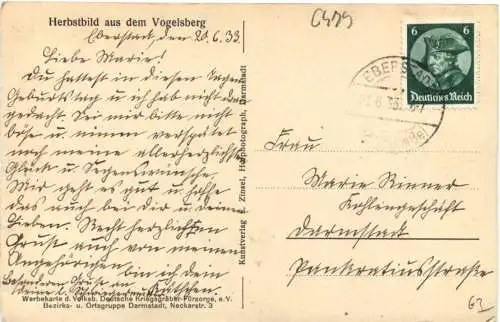 Herbstbild aus dem Vogelsberg
C479
Eberstadt, den 20.6.33
Liebe Marie!
Du hattest in diesen Tagen
Geburtstag u ich hab nicht dran
gedacht. Sei mir bitte nicht
böse u. nimm verspätet
noch meine allerherzlichsten
Glück u Segenswünsche.
Mir geht es gut u hoffe
das auch bei dir u deinen
Lieben. Recht herzlichsten
Gruss auch von meinen
Angehörigen bin ich dein
Besonderen Gruss an Käthchen.
deine
Werbekarte d. Volksb. Deutsche Kriegsgräber-Fürsorge, e.V.
Bezirks- u. Ortsgruppe Darmstadt, Neckarstr. 3
Kunstverlag E. Zinsel, Hofphotograph, Darmstadt
6 6
Deutsches Reich
EBERSTADT
Frau
Marie Rinner
Kohlengeschäft
Darmstadt
Pankratiusstraße
62